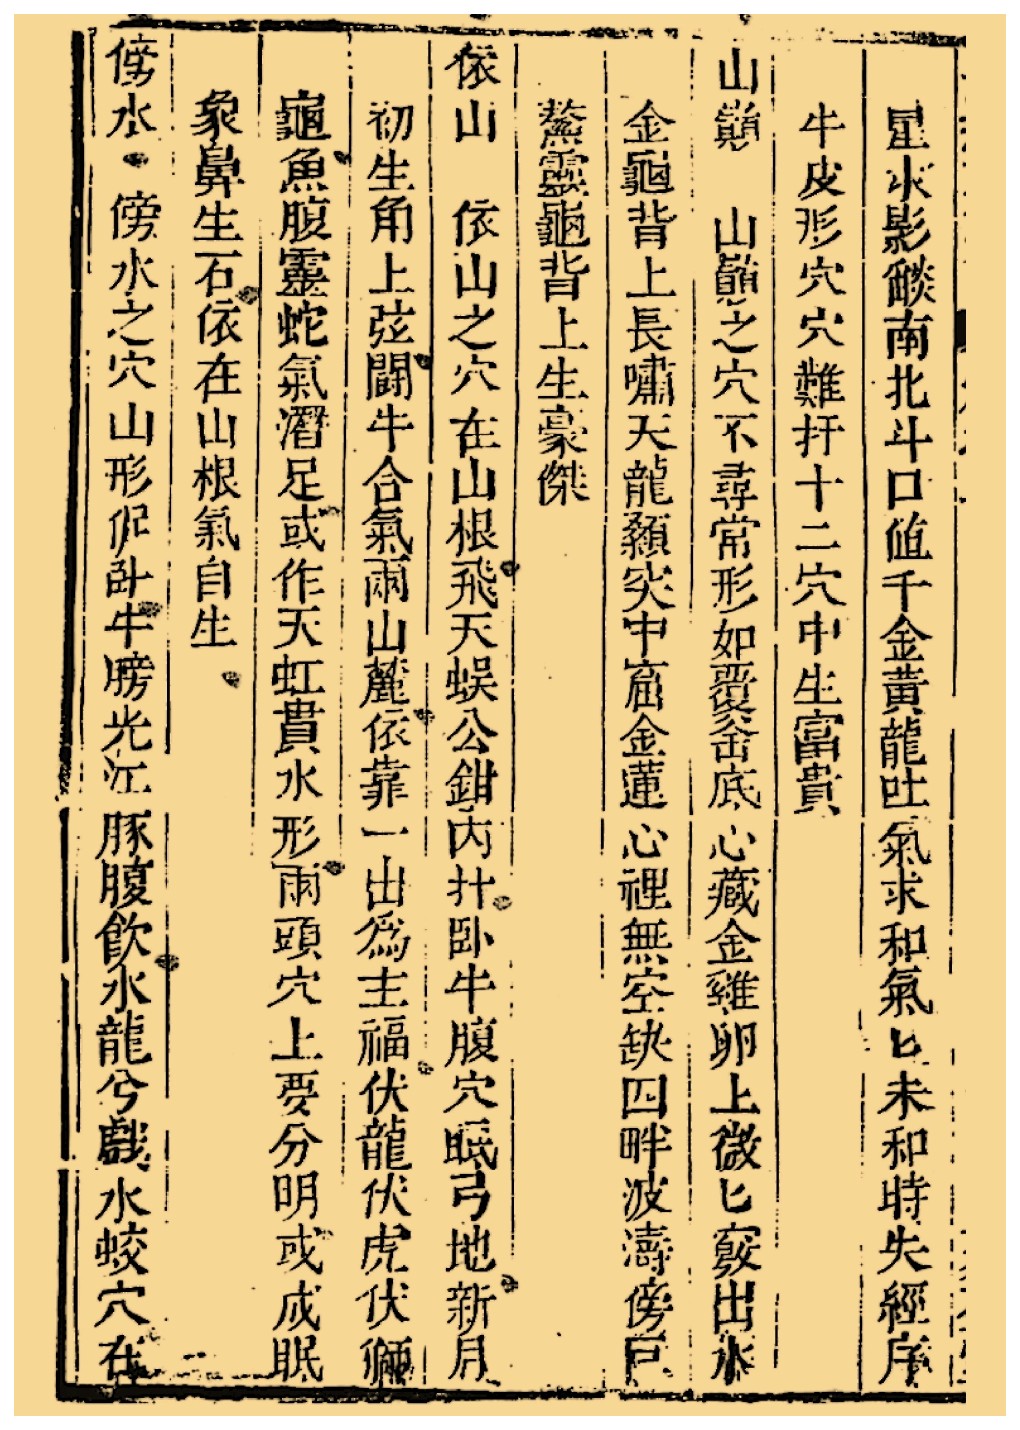 星水影燄南北斗口値千金黃龍吐氣求和氣匕未和時失經序
牛皮形穴穴難扞十二穴中生富貴
山巔　山巔之穴不尋常形如覆釜底心藏金雞卵上微匕竅出水
金龜背上長嘯天龍顙突中窟金蓮心裡無空缺四畔波濤傍巨
鰲靈龜背上生豪傑
依山　依山之穴在山根飛天蜈公鉗内扦臥牛腹穴眠弓地新月
初生角上弦鬪牛合氣兩山麓依靠一出爲主福伏龍伏虎伏獅
龜魚腹靈蛇氣潛足或作天虹貫水形兩頭穴上要分明或成眠
象鼻生石依在山根氣自生
傍水　傍水之穴山形伲卧牛膀光江豚腹飮水龍兮戲水蛟穴在